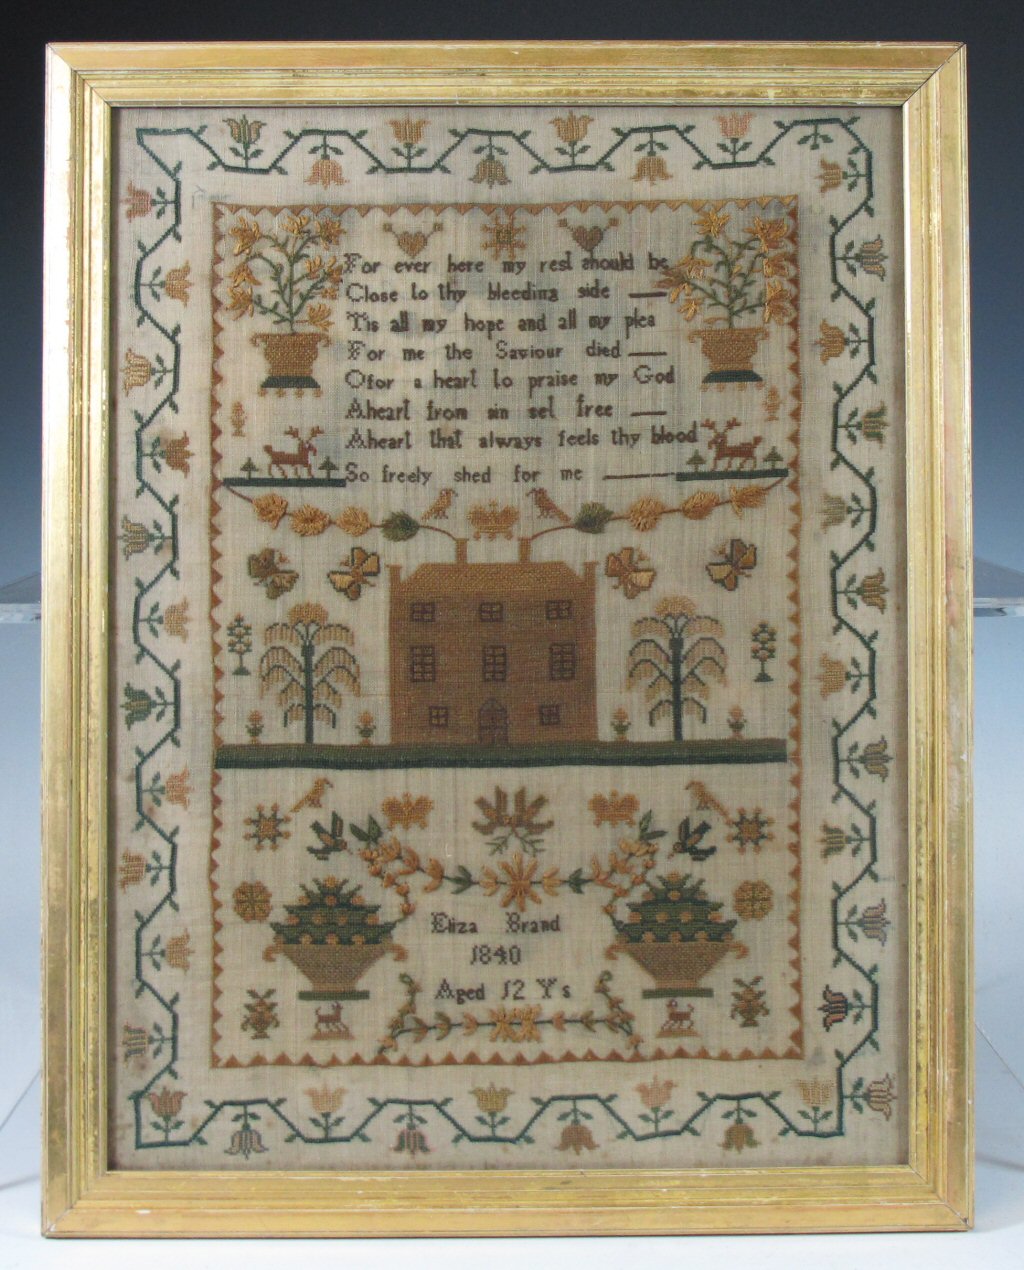 For ever here my rest should be
Close to thy bleeding side
'Tis all my hope and all my plea
For me the Saviour died
Ofor a heart to praise my God
Aheart from sin set free
Aheart that always feels thy blood
So freely shed for me
Eliza Brand
1840
Aged 12 Y s